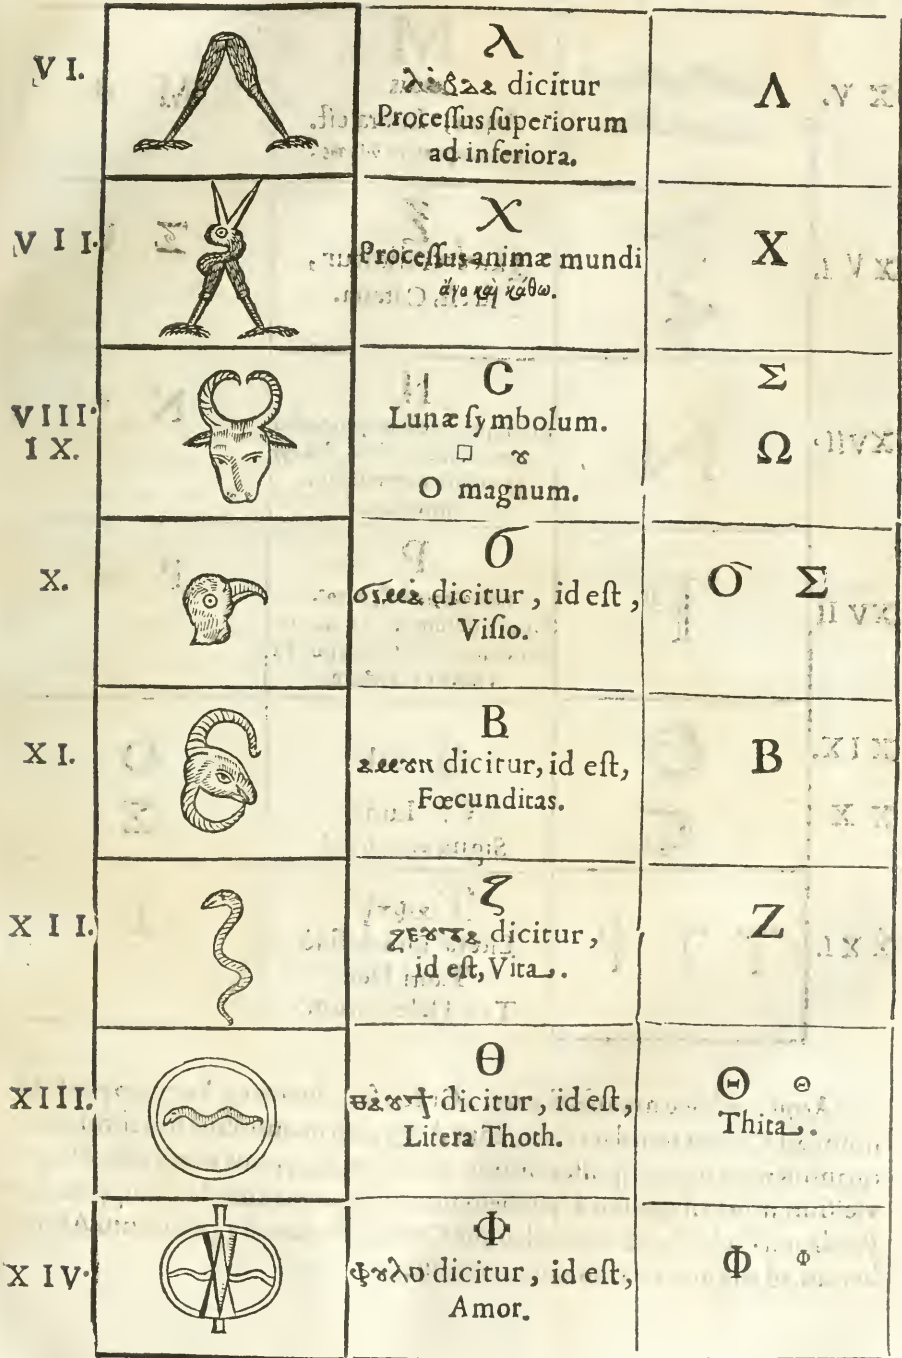 VI.
λ
dicitur
Proceſſus ſuperiorum
ad inferiora.
Λ
VII.
X
Proceſſus animæ mundi
ἄγο καὶ κάθω.
X
VIII.
IX.
C
Lunæ ſymbolum.
O magnum.
Σ
Ω
X.
σ
dicitur, id eſt,
Viſio.
Σ
XI.
B
dicitur, id eſt,
Fœcunditas.
B
XII.
ζ
dicitur,
id eſt, Vita.
Z
XIII.
Θ
dicitur, id eſt,
Litera Thoth.
Θ Θ
Thita.
XIV.
Φ
dicitur, id eſt,
Amor.
Φ Φ